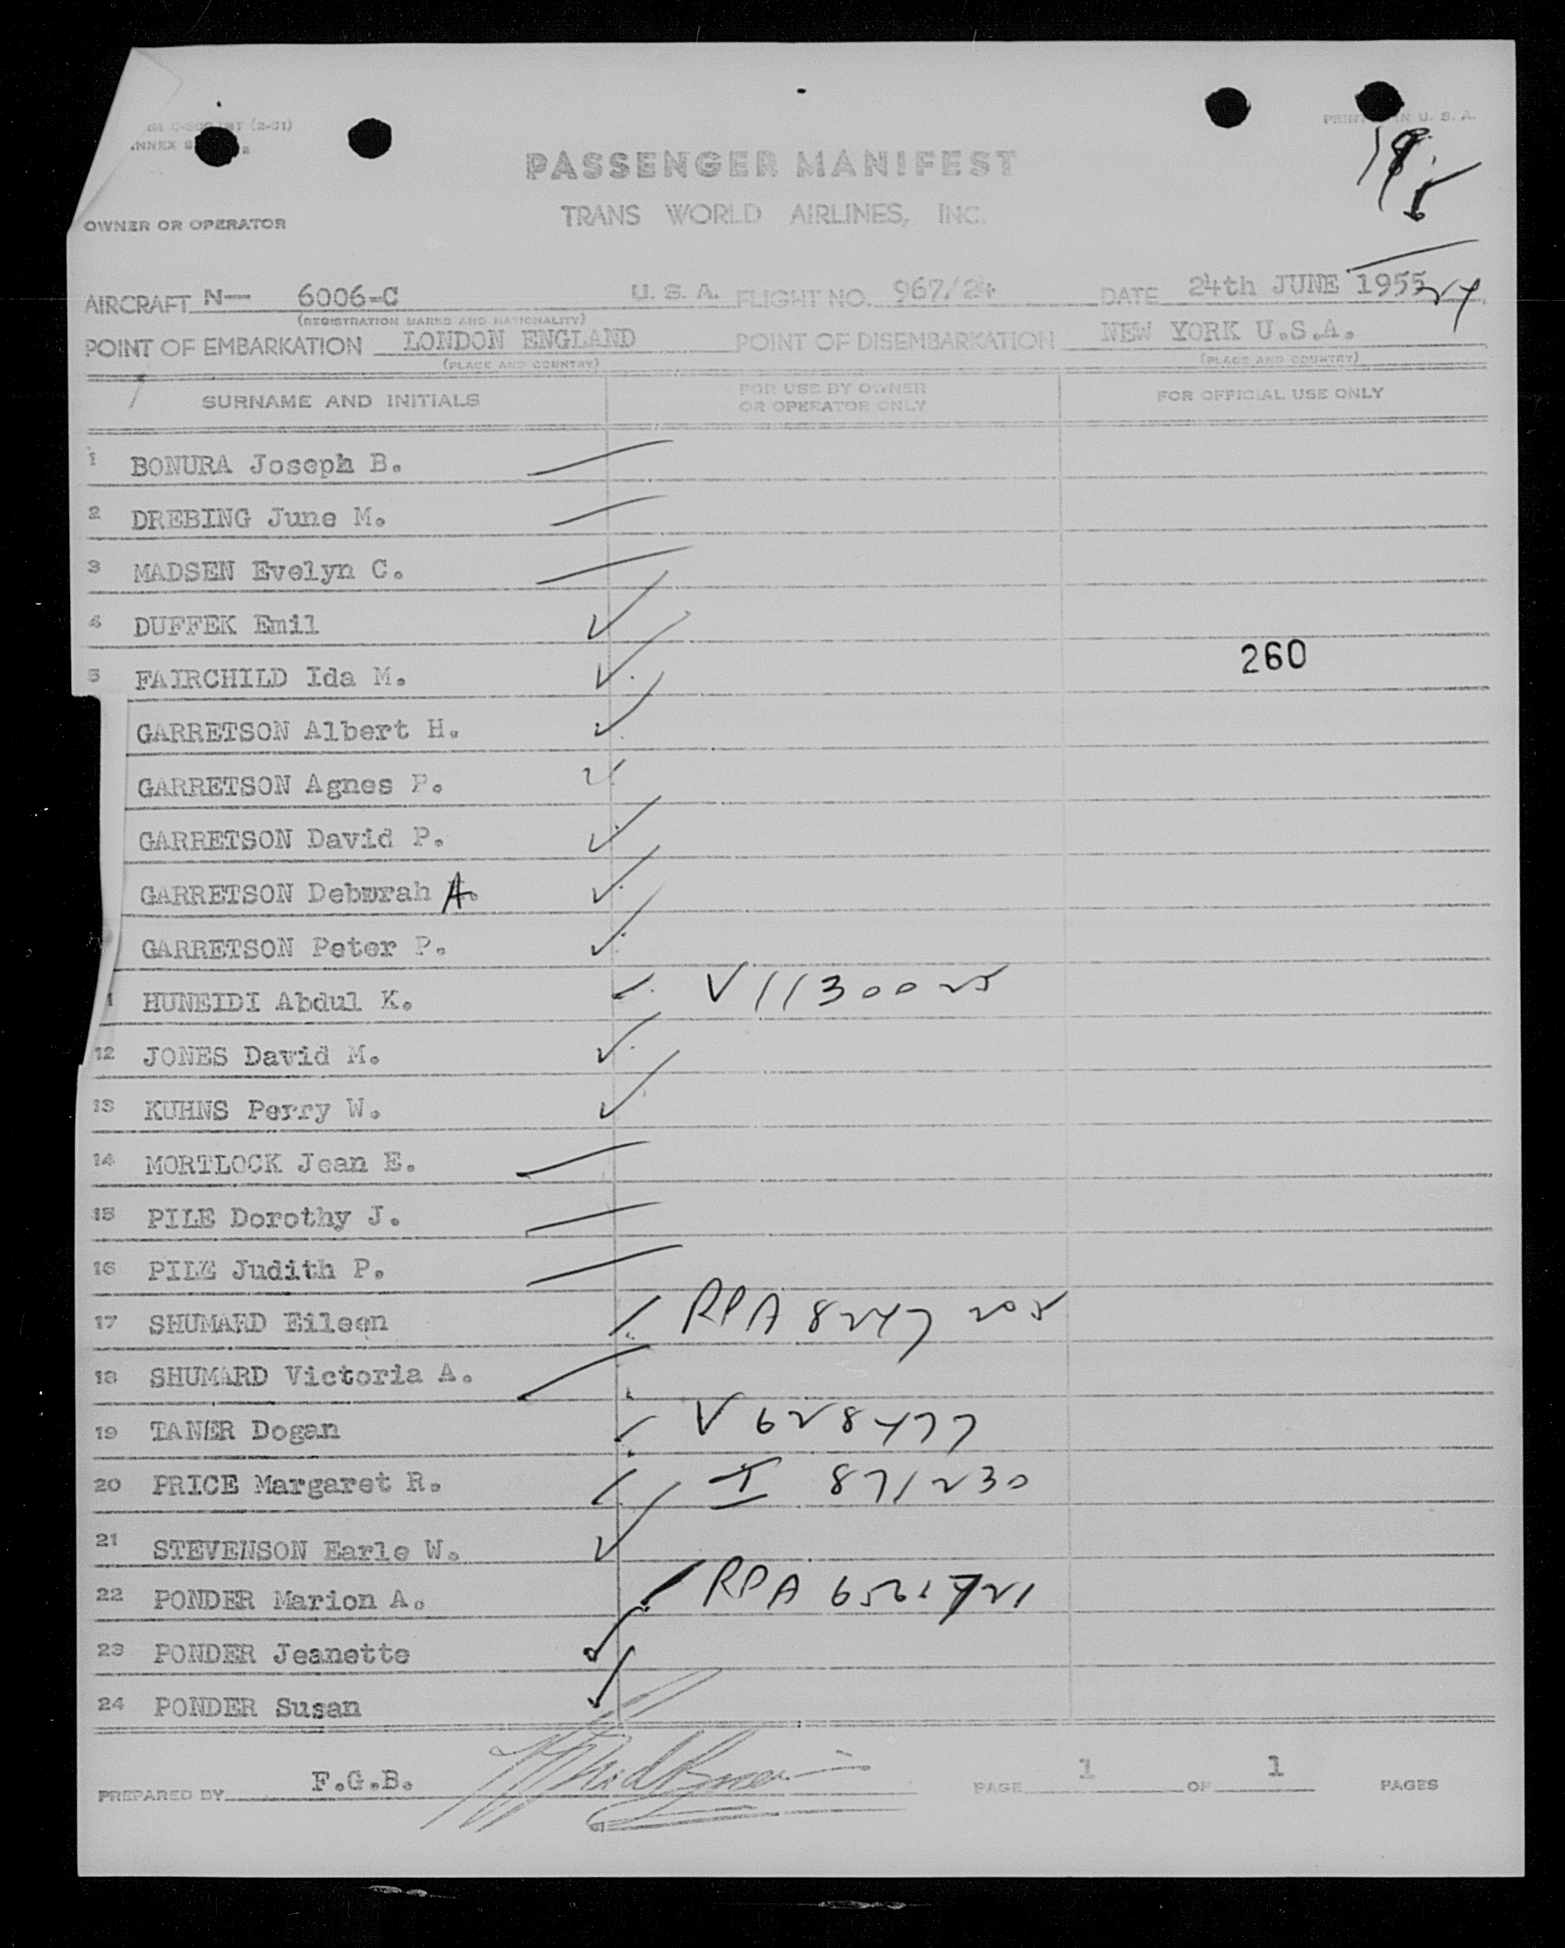 PRINTED IN U. S. A.
PASSENGER MANIFEST
TRANS WORLD AIRLINES, INC.
OWNER OR OPERATOR
AIRCRAFT N— 6006-C U. S. A. FLIGHT NO. 967/24 DATE 24th JUNE 1955
(REGISTRATION MARKS AND NATIONALITY)
POINT OF EMBARKATION LONDON ENGLAND POINT OF DISEMBARKATION NEW YORK U.S.A.
(PLACE AND COUNTRY) (PLACE AND COUNTRY)
SURNAME AND INITIALS FOR USE BY OWNER OR OPERATOR ONLY FOR OFFICIAL USE ONLY
1 BONURA Joseph B.
2 DREBING June M.
3 MADSEN Evelyn C.
4 DUFFEK Emil
260
5 FAIRCHILD Ida M.
GARRETSON Albert H.
GARRETSON Agnes P.
GARRETSON David P.
GARRETSON Deborah A.
GARRETSON Peter P.
1 HUNEIDI Abdul K. V1130025
12 JONES David M.
13 KUHNS Perry W.
14 MORTLOCK Jean E.
15 PILE Dorothy J.
16 PILE Judith P.
17 SHUMARD Eileen RPA 8247 205
18 SHUMARD Victoria A.
19 TANER Dogan V 628477
20 PRICE Margaret R. I 871230
21 STEVENSON Earle W.
22 PONDER Marion A. RPA
23 PONDER Jeanette
24 PONDER Susan
PREPARED BY F.G.B. PAGE 1 OF 1 PAGES